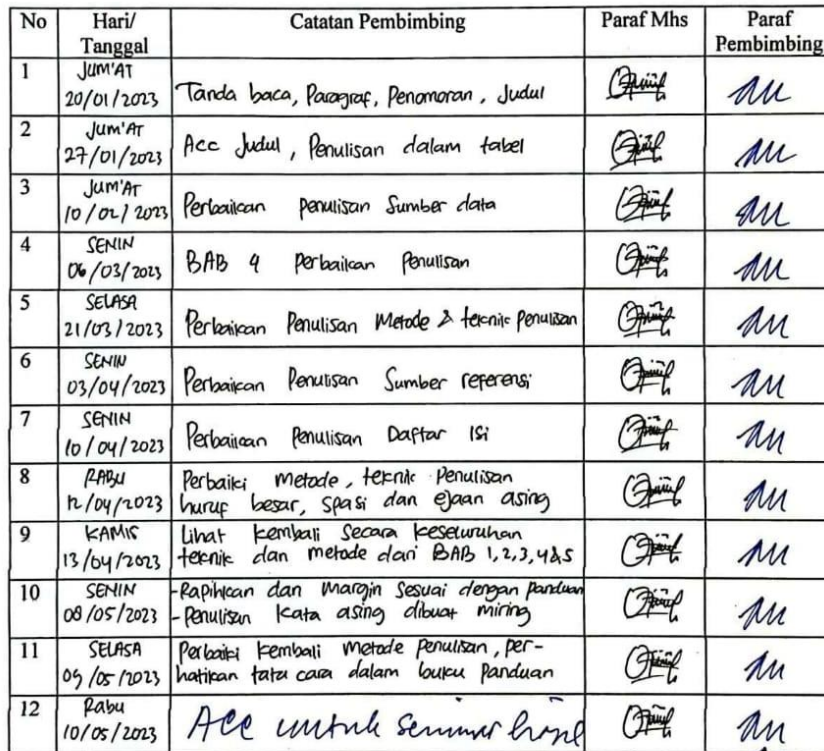 No Hari/ Catatan Pembimbing Paraf Mhs Paraf
Tanggal Pembimbing
1 JUM'AT
20/01/2023 Tanda baca, Paragraf, Penomoran, Judul
2 JUM'AT
27/01/2023 Acc Judul, Penulisan dalam tabel
3 JUM'AT
10/02/2023 Perbaikan penulisan Sumber data
4 SENIN
06/03/2023 BAB 4 Perbaikan Penulisan
5 SELASA
21/03/2023 Perbaikan Penulisan Metode & teknik penulisan
6 SENIN
03/04/2023 Perbaikan Penulisan Sumber referensi
7 SENIN
10/04/2023 Perbaikan Penulisan Daftar isi
8 RABU Perbaiki metode, teknik Penulisan
12/04/2023 huruf besar, spasi dan ejaan asing
9 KAMIS Lihat kembali Secara keseluruhan
13/04/2023 teknik dan metode dari BAB 1,2,3,4&5
10 SENIN -Rapihkan dan Margin Sesuai dengan panduan
08/05/2023 -Penulisan kata asing dibuat miring
11 SELASA Perbaiki kembali Metode Penulisan, per-
09/05/2023 hatikan tata cara dalam buku panduan
12 Rabu
10/05/2023 ACC untuk seminar hasil